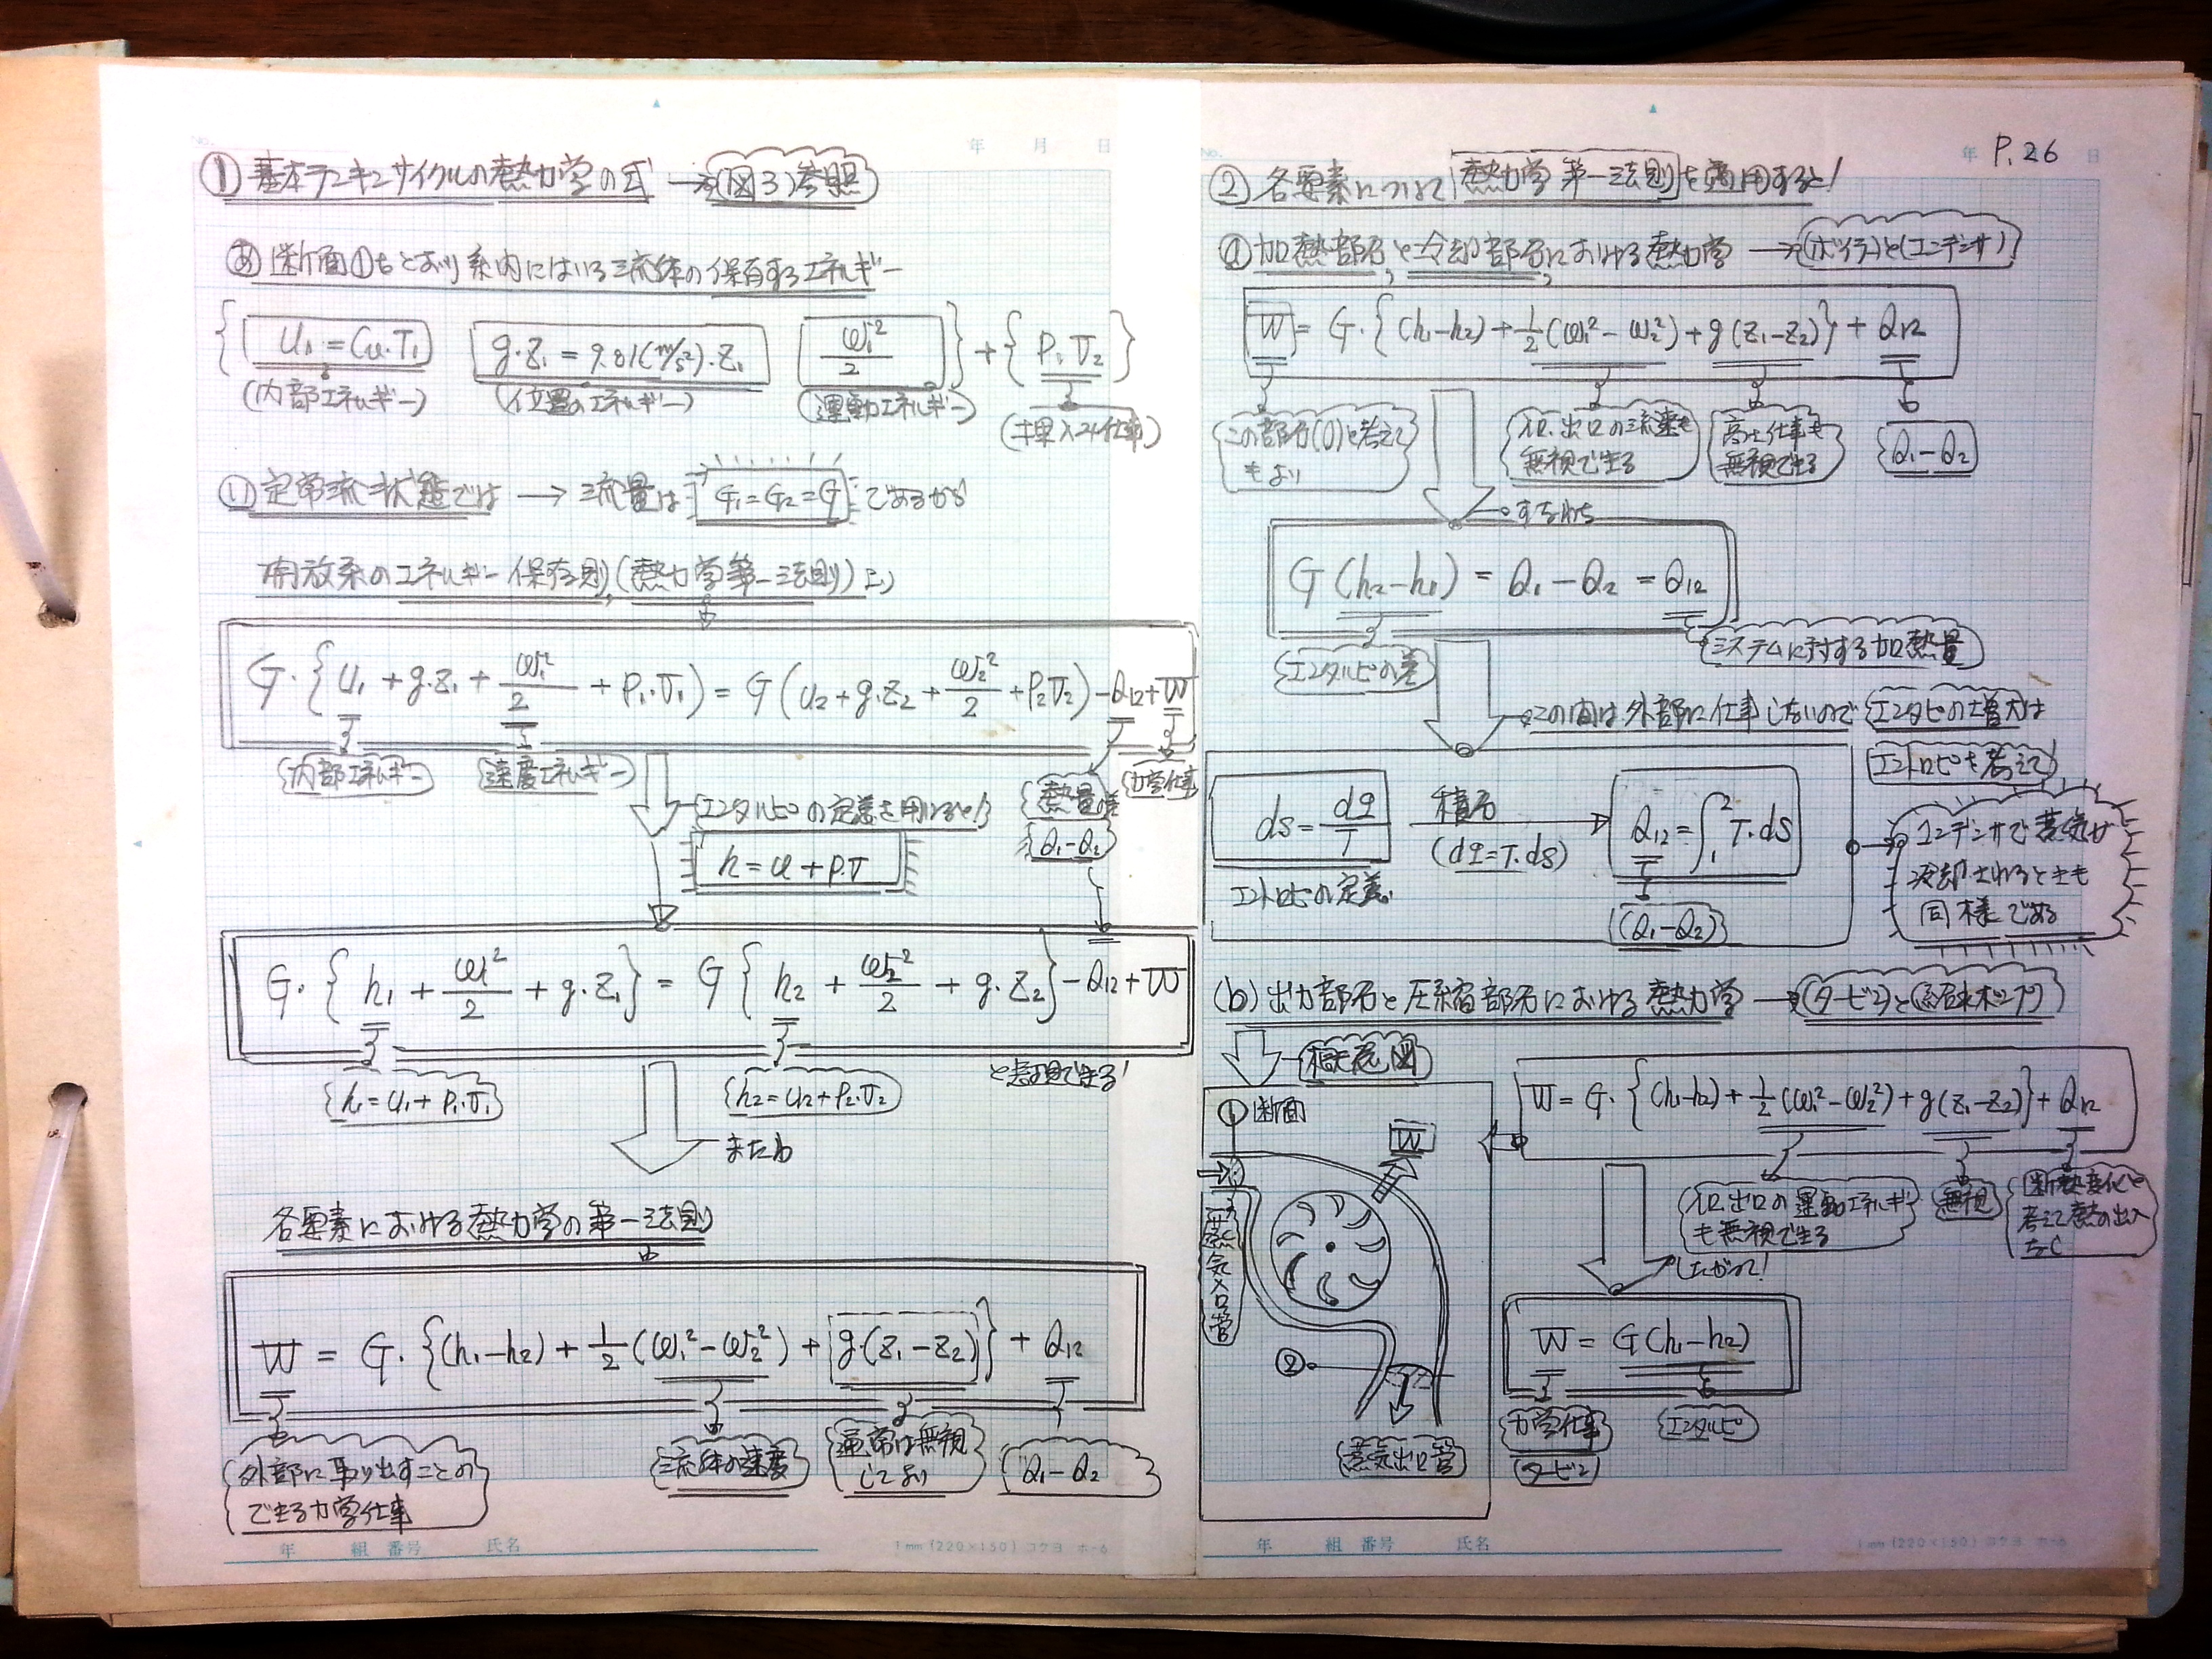 ① 基本ランキンサイクルの熱力学の式 → (図3)参照
あ 断面①をとおり系内にはいる流体の保有するエネルギー
{ u₁ = Cv・T₁ g・z₁ = 9.81(m/s²)・z₁ ω₁²/2 } + { P₁ v₂ }
(内部エネルギー) (位置のエネルギー) (運動エネルギー) (押込み仕事)
い 定常流状態では → 流量は G₁=G₂=G であるから
開放系のエネルギー保存則,(熱力学第一法則)より
G・{ u₁ + g・z₁ + ω₁²/2 + P₁・v₁ ) = G ( u₂ + g・z₂ + ω₂²/2 + P₂v₂ ) − Q₁₂ + W
(内部エネルギー) (速度エネルギー) (熱量の差 Q₁−Q₂) (力学仕事)
(エンタルピの定義を用いると!)
h = u + P・v
G・{ h₁ + ω₁²/2 + g・z₁ } = G { h₂ + ω₂²/2 + g・z₂ } − Q₁₂ + W
と表現できる!
(h₁ = u₁ + P₁・v₁) (h₂ = u₂ + P₂・v₂)
または
各要素における熱力学の第一法則
W = G・{(h₁−h₂) + 1/2 (ω₁²−ω₂²) + g・(z₁−z₂)} + Q₁₂
(外部に取り出すことの
できる力学仕事
流体の速度
通常は無視
してより
Q₁−Q₂
P.26
② 各要素について 熱力学 第一法則 を適用すると!
ⓐ 加熱部分,と冷却部分,における熱力学 → (ボイラ)と(コンデンサ)
W = G・{(h₁−h₂) + 1/2 (ω₁²−ω₂²) + g(z₁−z₂)} + Q₁₂
この部分(0)と考えて
もよい
入口,出口の流速も
無視できる
高さ仕事も
無視できる
Q₁−Q₂
すなわち
G (h₂−h₁) = Q₁ − Q₂ = Q₁₂
システムに対する加熱量
(エンタルピの差)
この間は外部に仕事しないので エンタピの増大は
エントロピを考えて
ds = dq/T 積分 → Q₁₂ = ∫₁² T・ds
(dq=T・ds)
エントロピの定義。
(Q₁−Q₂)
コンデンサで蒸気が
冷却されるときも
同様である
(b) 出力部分と圧縮部分における熱力学 → (タービン)と(給水ポンプ)
概念図
① 断面
W
蒸気入口管
②
蒸気出口管
W = G・{(h₁−h₂) + 1/2 (ω₁²−ω₂²) + g(z₁−z₂)} + Q₁₂
入口,出口の運動エネルギー
も無視できる
無視
断熱変化と
考えて熱の出入
なし
したがって!
W = G(h₁−h₂)
力学仕事
(タービン)
エンタルピ
年 月 日
年 日
年 組 番号 氏名
1mm(220×150) コクヨ ホ-6
年 組 番号 氏名
1mm(220×150) コクヨ ホ-6